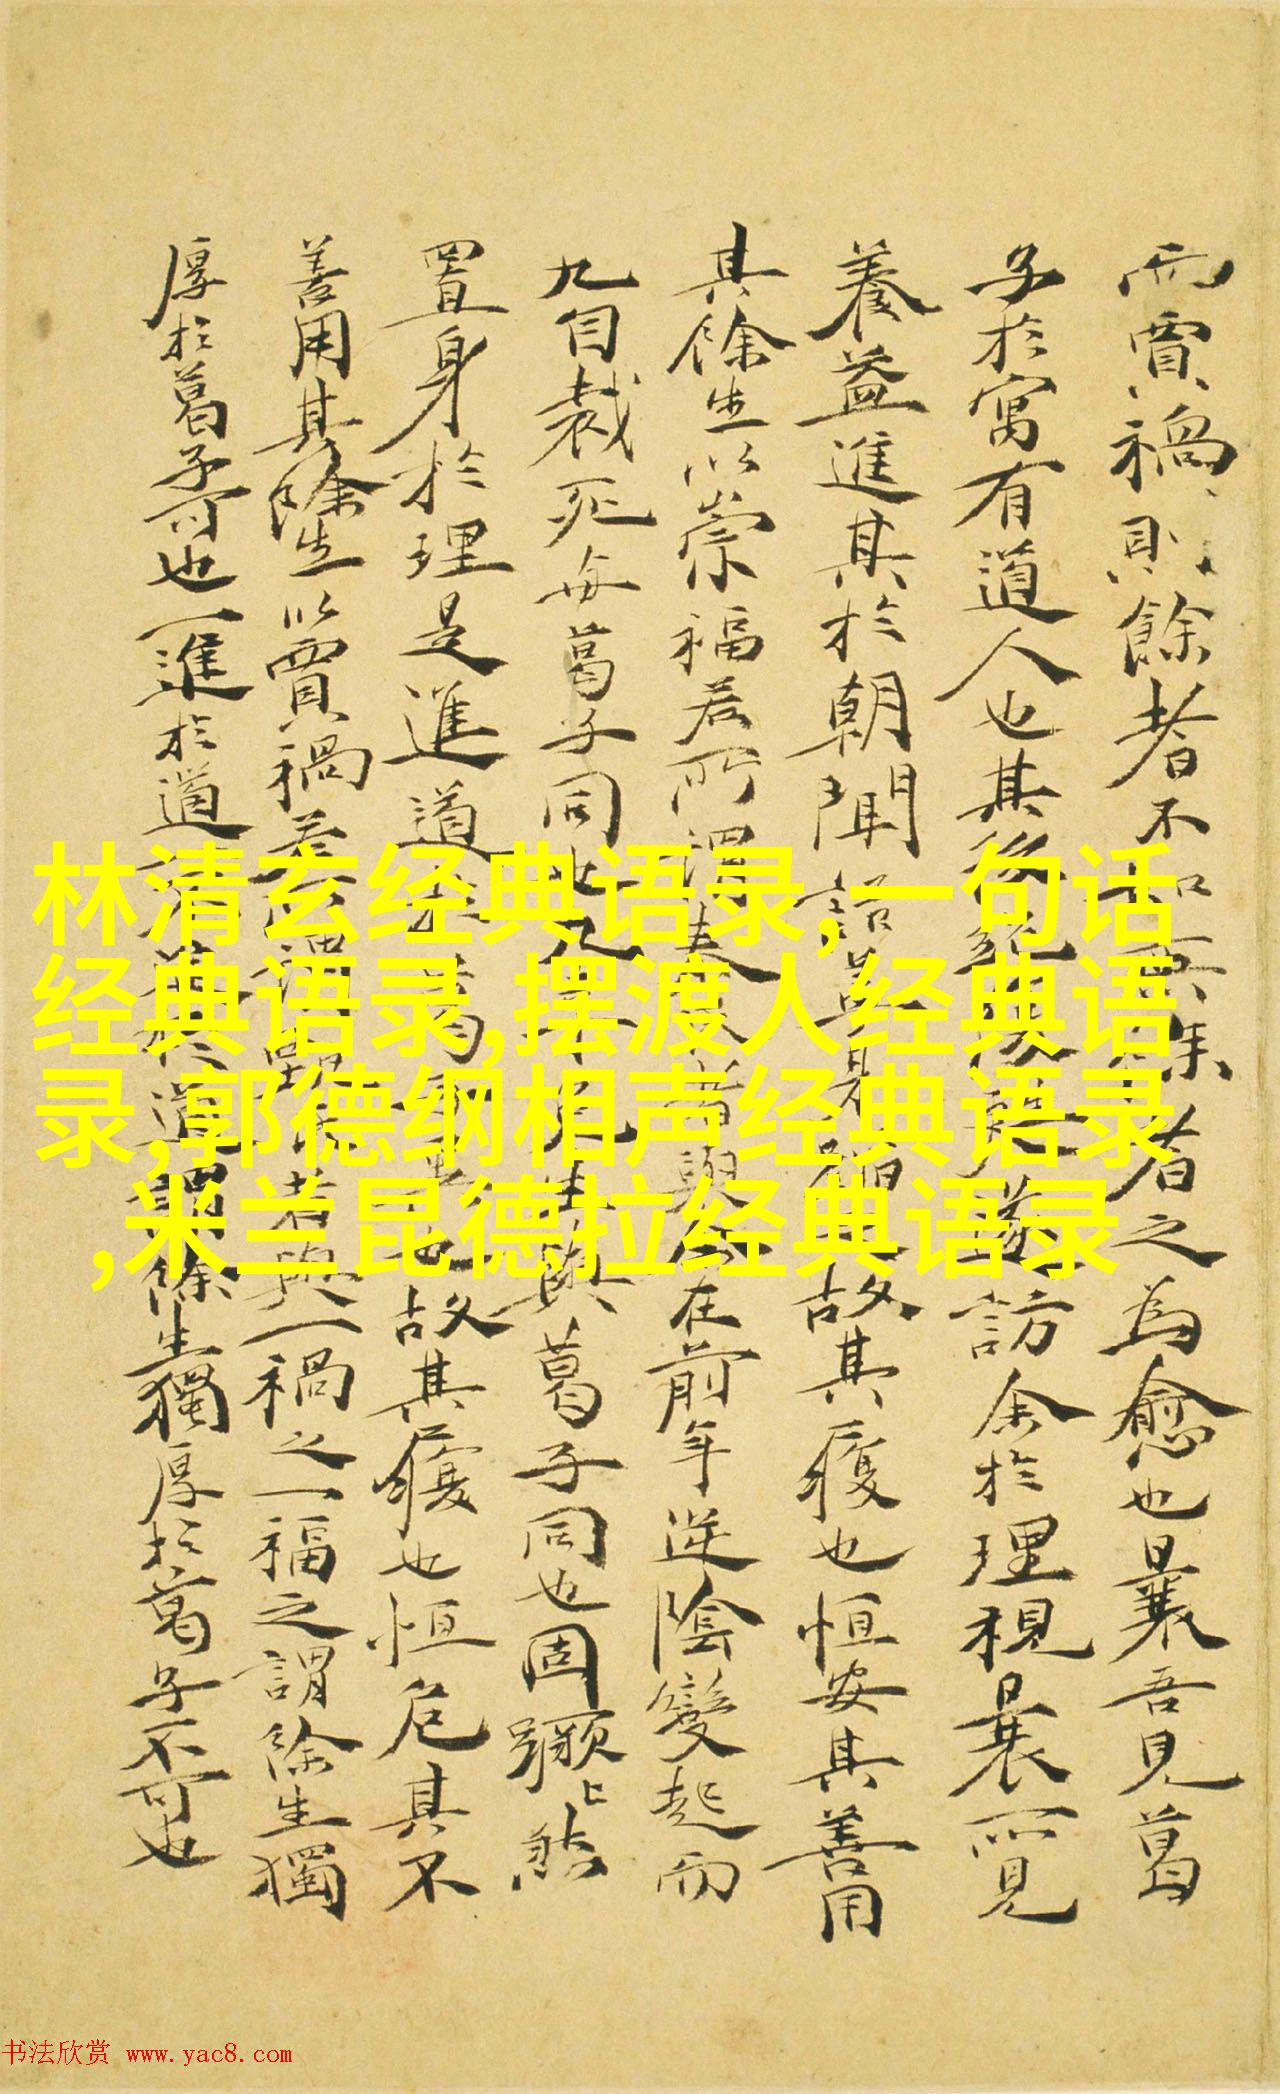 而賈禍則餘者不如無餘者之為愈也曩吾見葛
子於寓有道人也其後訪余於理視曩所見
養益進其於朝聞 故其履也恒安其善用
其餘生以崇福若所謂 者與 在前年逆陰變起而
九自裁死與葛子同也九 生與葛子同也固
置身於理是進道 故其履也恒危其不
善用其餘生以賈禍若所謂 者與一禍之一福之謂餘生獨
厚於葛子可也一進於道 道謂餘生獨厚於葛子不可也
林清玄经典语录,一句话
经典语录,摆渡人经典语
录,郭德纲相声经典语录
,米兰昆德拉经典语录
书法欣赏 www.yac8.com